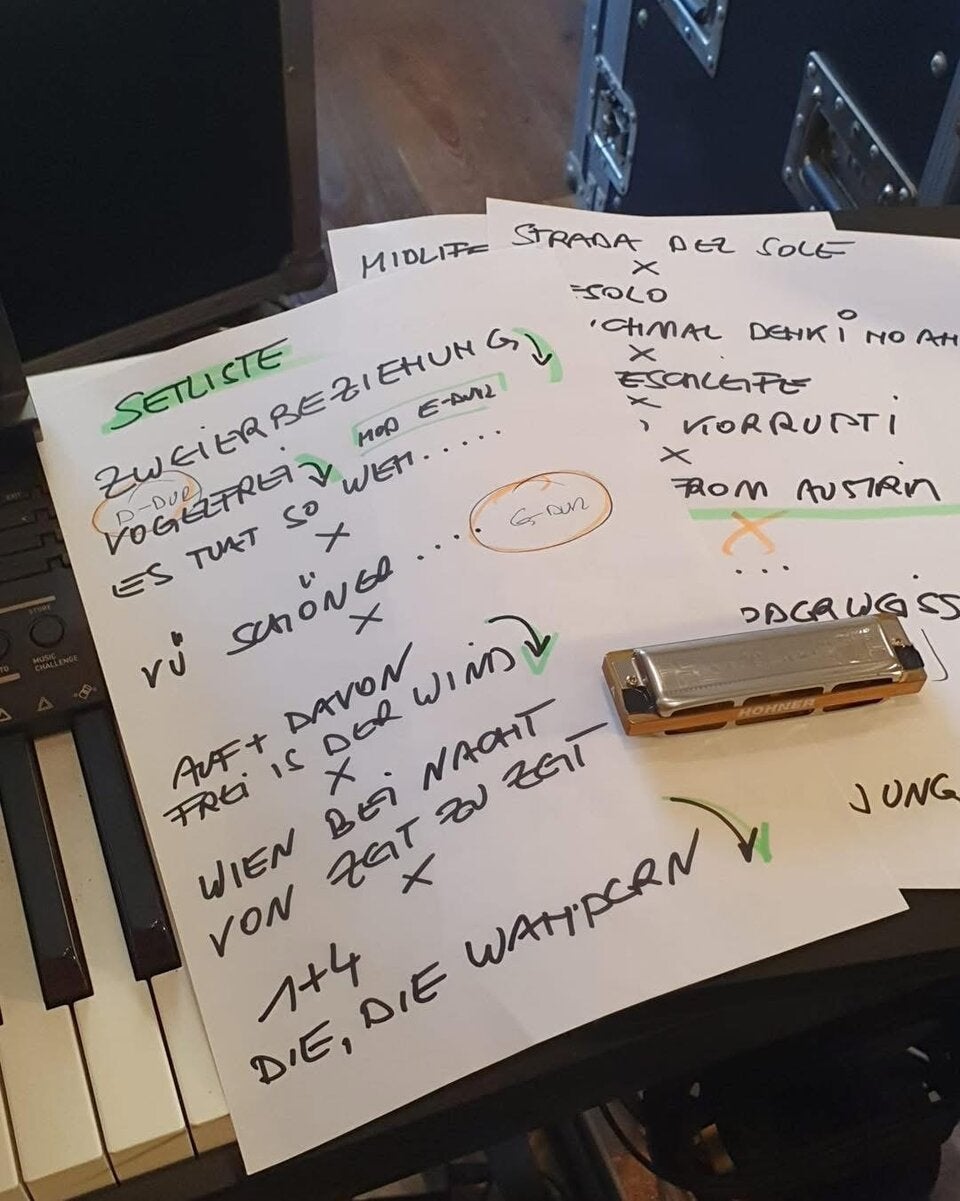 SETLISTE
ZWEIERBEZIEHUNG
MOD E-DUR
D-DUR
VOGELFREI
ES TUAT SO WEH.....
X
VÜ SCHÖNER ....
G-DUR
X
AUF+ DAVON
FREI IS DER WIND
X
WIEN BEI NACHT
VON ZEIT ZU ZEIT
X
1+4
DIE, DIE WANDERN
MIDLIFE
STRADA DEL SOLE
X
SOLO
CHMAL DENK I NO AN
X
ESCHLEIFE
X
KORRUPTI
X
FROM AUSTRIA
X
...
JUNG
HOHNER
MUSIC
CHALLENGE
STORE